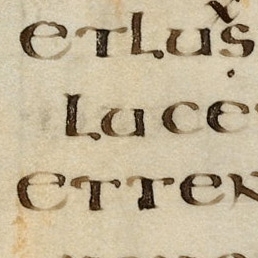 etlus
luce
etten